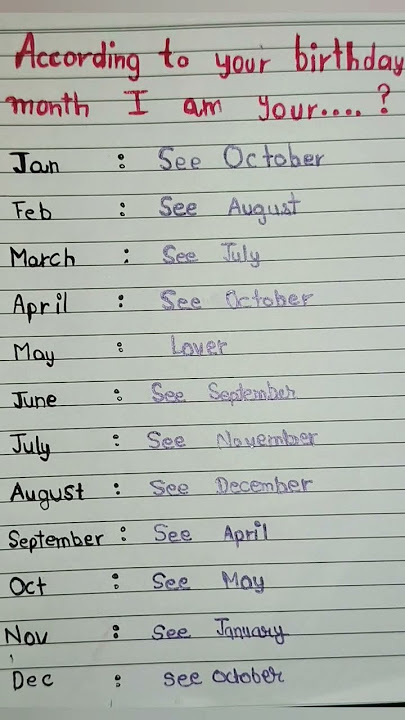 According to your birthday
month I am your.... ?
Jan : See October
Feb : See August
March : See July
April : See October
May : Lover
June : See September
July : See November
August : See December
September : See April
Oct : See May
Nov : See January
Dec : see october